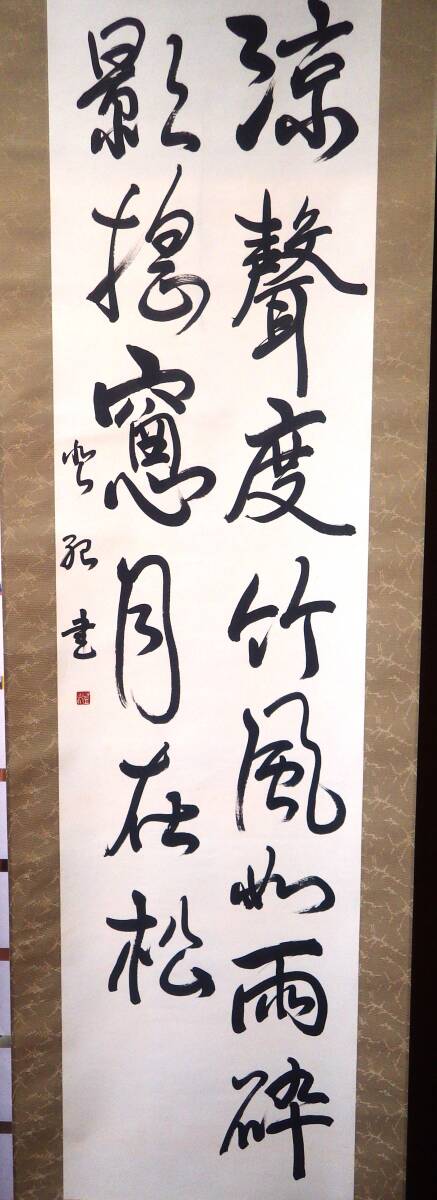 涼聲度竹風如雨碎
影揺窻月在松
書